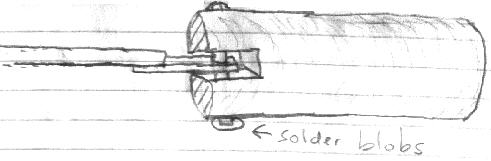 ← solder blobs